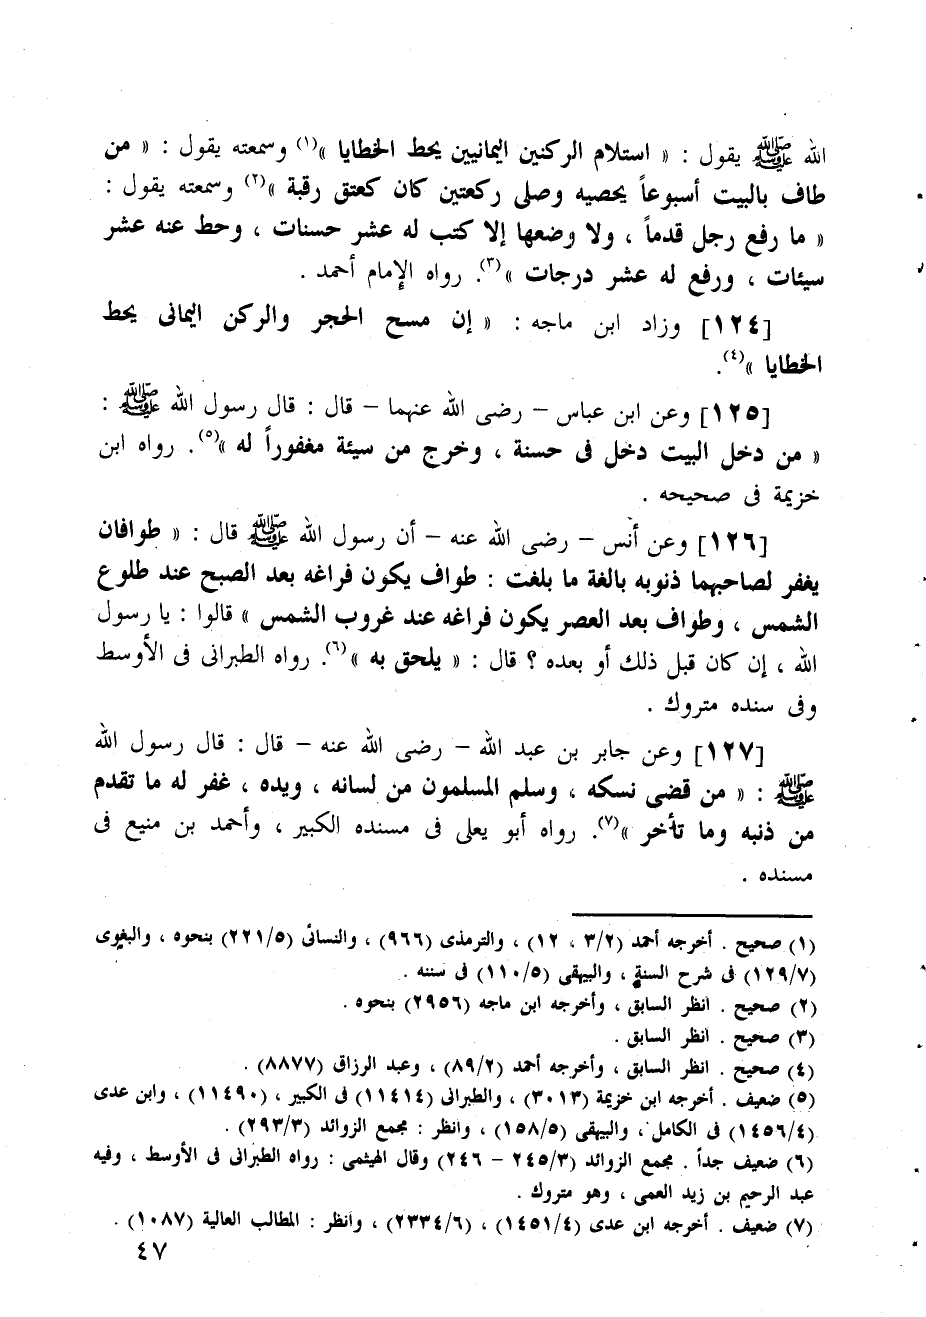 الله ﷺ يقول : « استلام الركنين اليمانيين يحط الخطايا »(١) وسمعته يقول : « من
طاف بالبيت أسبوعاً يحصيه وصلى ركعتين كان كعتق رقبة »(٢) وسمعته يقول :
« ما رفع رجل قدماً ، ولا وضعها إلا كتب له عشر حسنات ، وحط عنه عشر
سيئات ، ورفع له عشر درجات »(٣). رواه الإمام أحمد .
[١٢٤] وزاد ابن ماجه : « إن مسح الحجر والركن اليمانى يحط
الخطايا »(٤).
[١٢٥] وعن ابن عباس – رضى الله عنهما – قال : قال رسول الله ﷺ :
« من دخل البيت دخل فى حسنة ، وخرج من سيئة مغفوراً له »(٥). رواه ابن
خزيمة فى صحيحه .
[١٢٦] وعن أنس – رضى الله عنه – أن رسول الله ﷺ قال : « طوافان
يغفر لصاحبهما ذنوبه بالغة ما بلغت : طواف يكون فراغه بعد الصبح عند طلوع
الشمس ، وطواف بعد العصر يكون فراغه عند غروب الشمس » قالوا : يا رسول
الله ، إن كان قبل ذلك أو بعده ؟ قال : « يلحق به »(٦). رواه الطبرانى فى الأوسط
وفى سنده متروك .
[١٢٧] وعن جابر بن عبد الله – رضى الله عنه – قال : قال رسول الله
ﷺ : « من قضى نسكه ، وسلم المسلمون من لسانه ، ويده ، غفر له ما تقدم
من ذنبه وما تأخر »(٧). رواه أبو يعلى فى مسنده الكبير ، وأحمد بن منيع فى
مسنده .
(١) صحيح . أخرجه أحمد (٣/٢ ، ١٢) ، والترمذى (٩٦٦) ، والنسائى (٢٢١/٥) بنحوه ، والبغوى
(١٢٩/٧) فى شرح السنة ، والبيهقى (١١٠/٥) فى سننه .
(٢) صحيح . انظر السابق ، وأخرجه ابن ماجه (٢٩٥٦) بنحوه .
(٣) صحيح . انظر السابق .
(٤) صحيح . انظر السابق ، وأخرجه أحمد (٨٩/٢) ، وعبد الرزاق (٨٨٧٧) .
(٥) ضعيف . أخرجه ابن خزيمة (٣٠١٣) ، والطبرانى (١١٤١٤) فى الكبير ، (١١٤٩٠) ، وابن عدى
(١٤٥٦/٤) فى الكامل ، والبيهقى (١٥٨/٥) ، وانظر : مجمع الزوائد (٢٩٣/٣) .
(٦) ضعيف جداً . مجمع الزوائد (٢٤٥/٣ – ٢٤٦) وقال الهيثمى : رواه الطبرانى فى الأوسط ، وفيه
عبد الرحيم بن زيد العمى ، وهو متروك .
(٧) ضعيف . أخرجه ابن عدى (١٤٥١/٤) ، (٢٣٣٤/٦) ، وانظر : المطالب العالية (١٠٨٧) .
٤٧